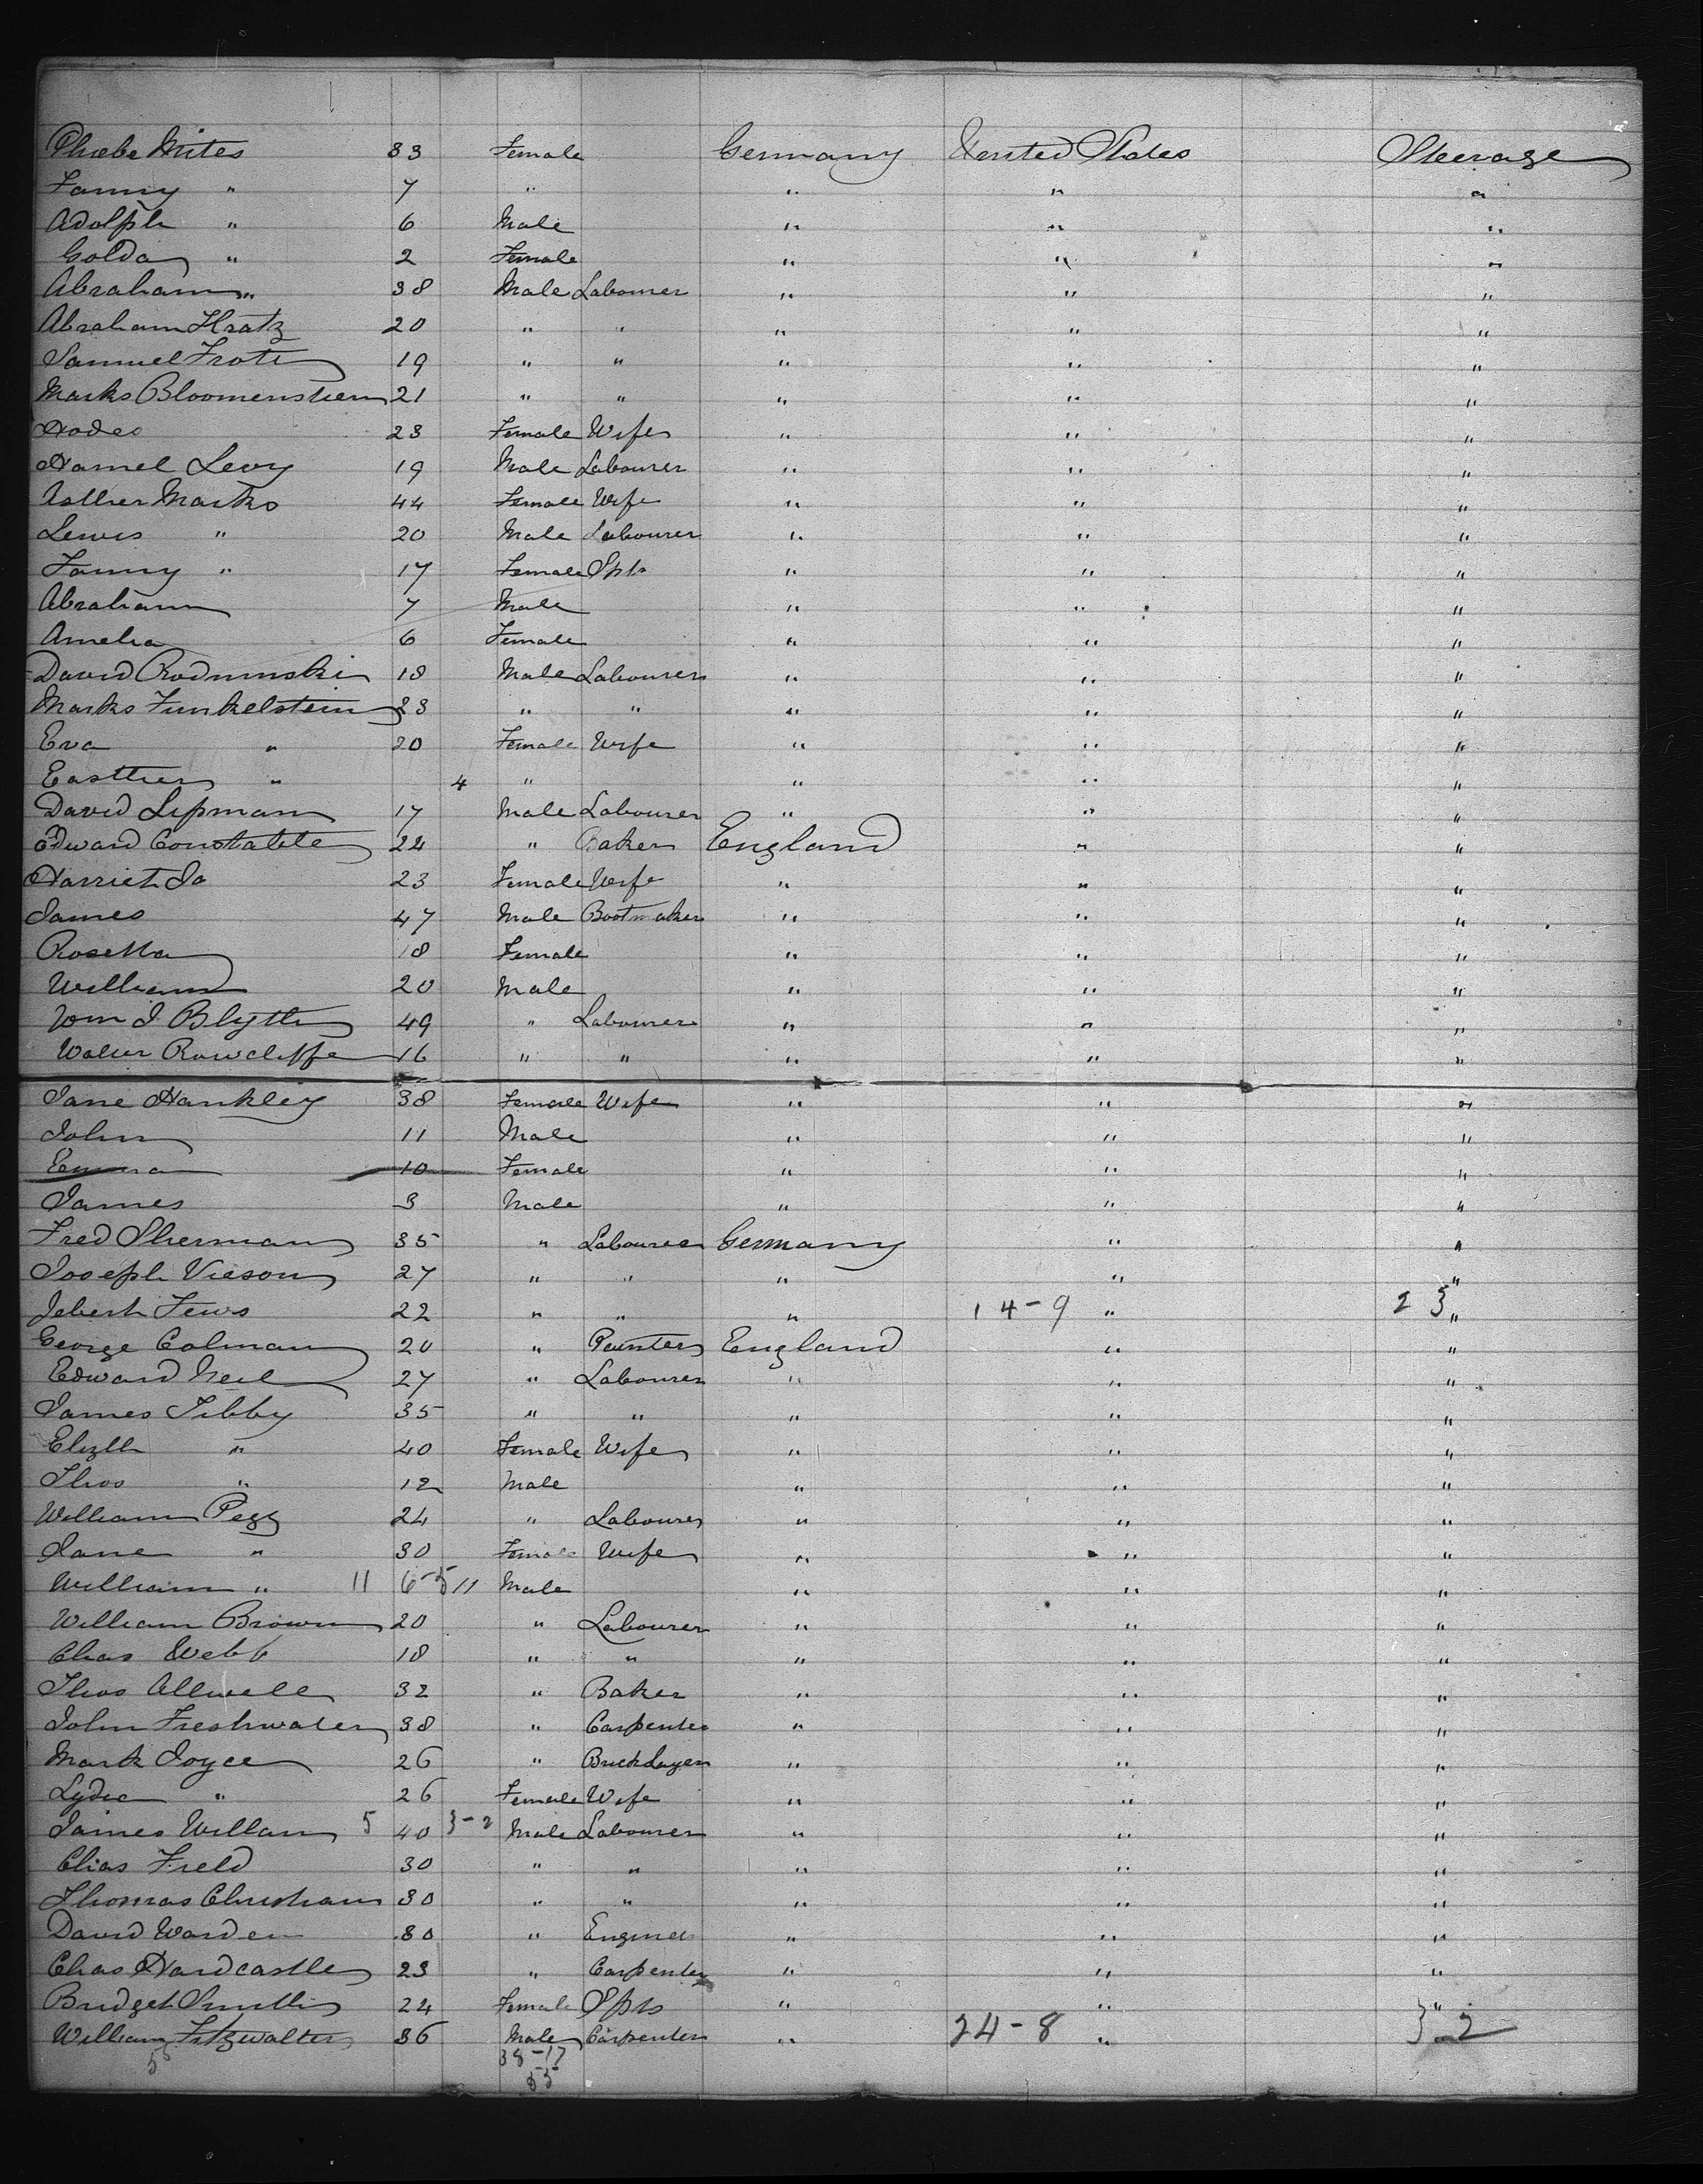 Phoebe Mites 33 Female Germany United States Steerage
Fanny " 7 " " " "
Adolph " 6 Male " " "
Golda " 2 Female " " "
Abraham " 38 Male Labourer " " "
Abraham Hratz 20 " " " " "
Samuel Trote 19 " " " " "
Marks Bloomenstien 21 " " " " "
Hodes 23 Female Wife " " "
Hamel Levy 19 Male Labourer " " "
Asther Marks 44 Female Wife " " "
Lewis " 20 Male Labourer " " "
Fanny " 17 Female Sptr " " "
Abraham 7 Male " " "
Amelia 6 Female " " "
David Rodminski 18 Male Labourer " " "
Marks Funkelstein 23 " " " " "
Eva " 20 Female Wife " " "
Easther " 4 " " " "
David Lipman 17 Male Labourer " " "
Edward Constable 22 " Baker England " "
Harriet Do 23 Female Wife " " "
James 47 Male Bootmaker " " "
Rosetta 18 Female " " "
William 20 Male " " "
Wm J Blyth 49 " Labourer " " "
Walter Rowcliffe 16 " " " " "
Jane Hankley 38 Female Wife " " "
John 11 Male " " "
Emma 10 Female " " "
James 3 Male " " "
Fred Sherman 35 " Labourer Germany " "
Joseph Vieson 27 " " " " "
Fews 22 " " " 14-9 " 23 "
George Colman 20 " Painter England " "
Edward Neil 27 " Labourer " " "
James Tibby 35 " " " " "
Elizth " 40 Female Wife " " "
Thos " 12 Male " " "
William Pegg 24 " Labourer " " "
Jane " 30 Female Wife " " "
William " 11 6-5 11 Male " " "
William Brown 20 " Labourer " " "
Chas Webb 18 " " " " "
Thos Allwell 32 " Baker " " "
John Freshwater 38 " Carpenter " " "
Mark Joyce 26 " Bricklayer " " "
Lydia " 26 Female Wife " " "
James Willam 5 40 3-2 Male Labourer " " "
Chas Field 30 " " " " "
Thomas Christian 30 " " " " "
David Warden 30 " Engineer " " "
Chas Hardcastle 23 " Carpenter " " "
Bridget Smith 24 Female Sptr " " "
William Fitzwalter 36 Male Carpenter " 24-8 " 3-2
55 38-17
55